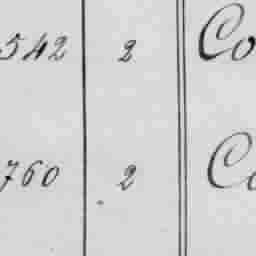 542 2 Co
760 2 Co